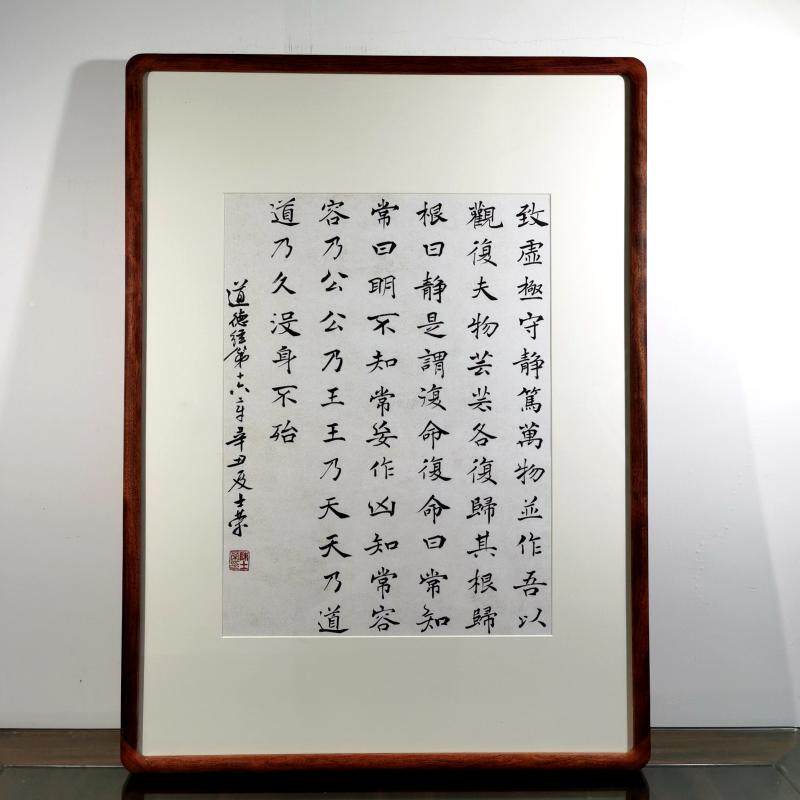 致虛極守靜篤萬物並作吾以
觀復夫物芸芸各復歸其根歸
根曰靜是謂復命復命曰常知
常曰明不知常妄作凶知常容
容乃公公乃王王乃天天乃道
道乃久没身不殆
道德經第十六章辛丑夏士榮